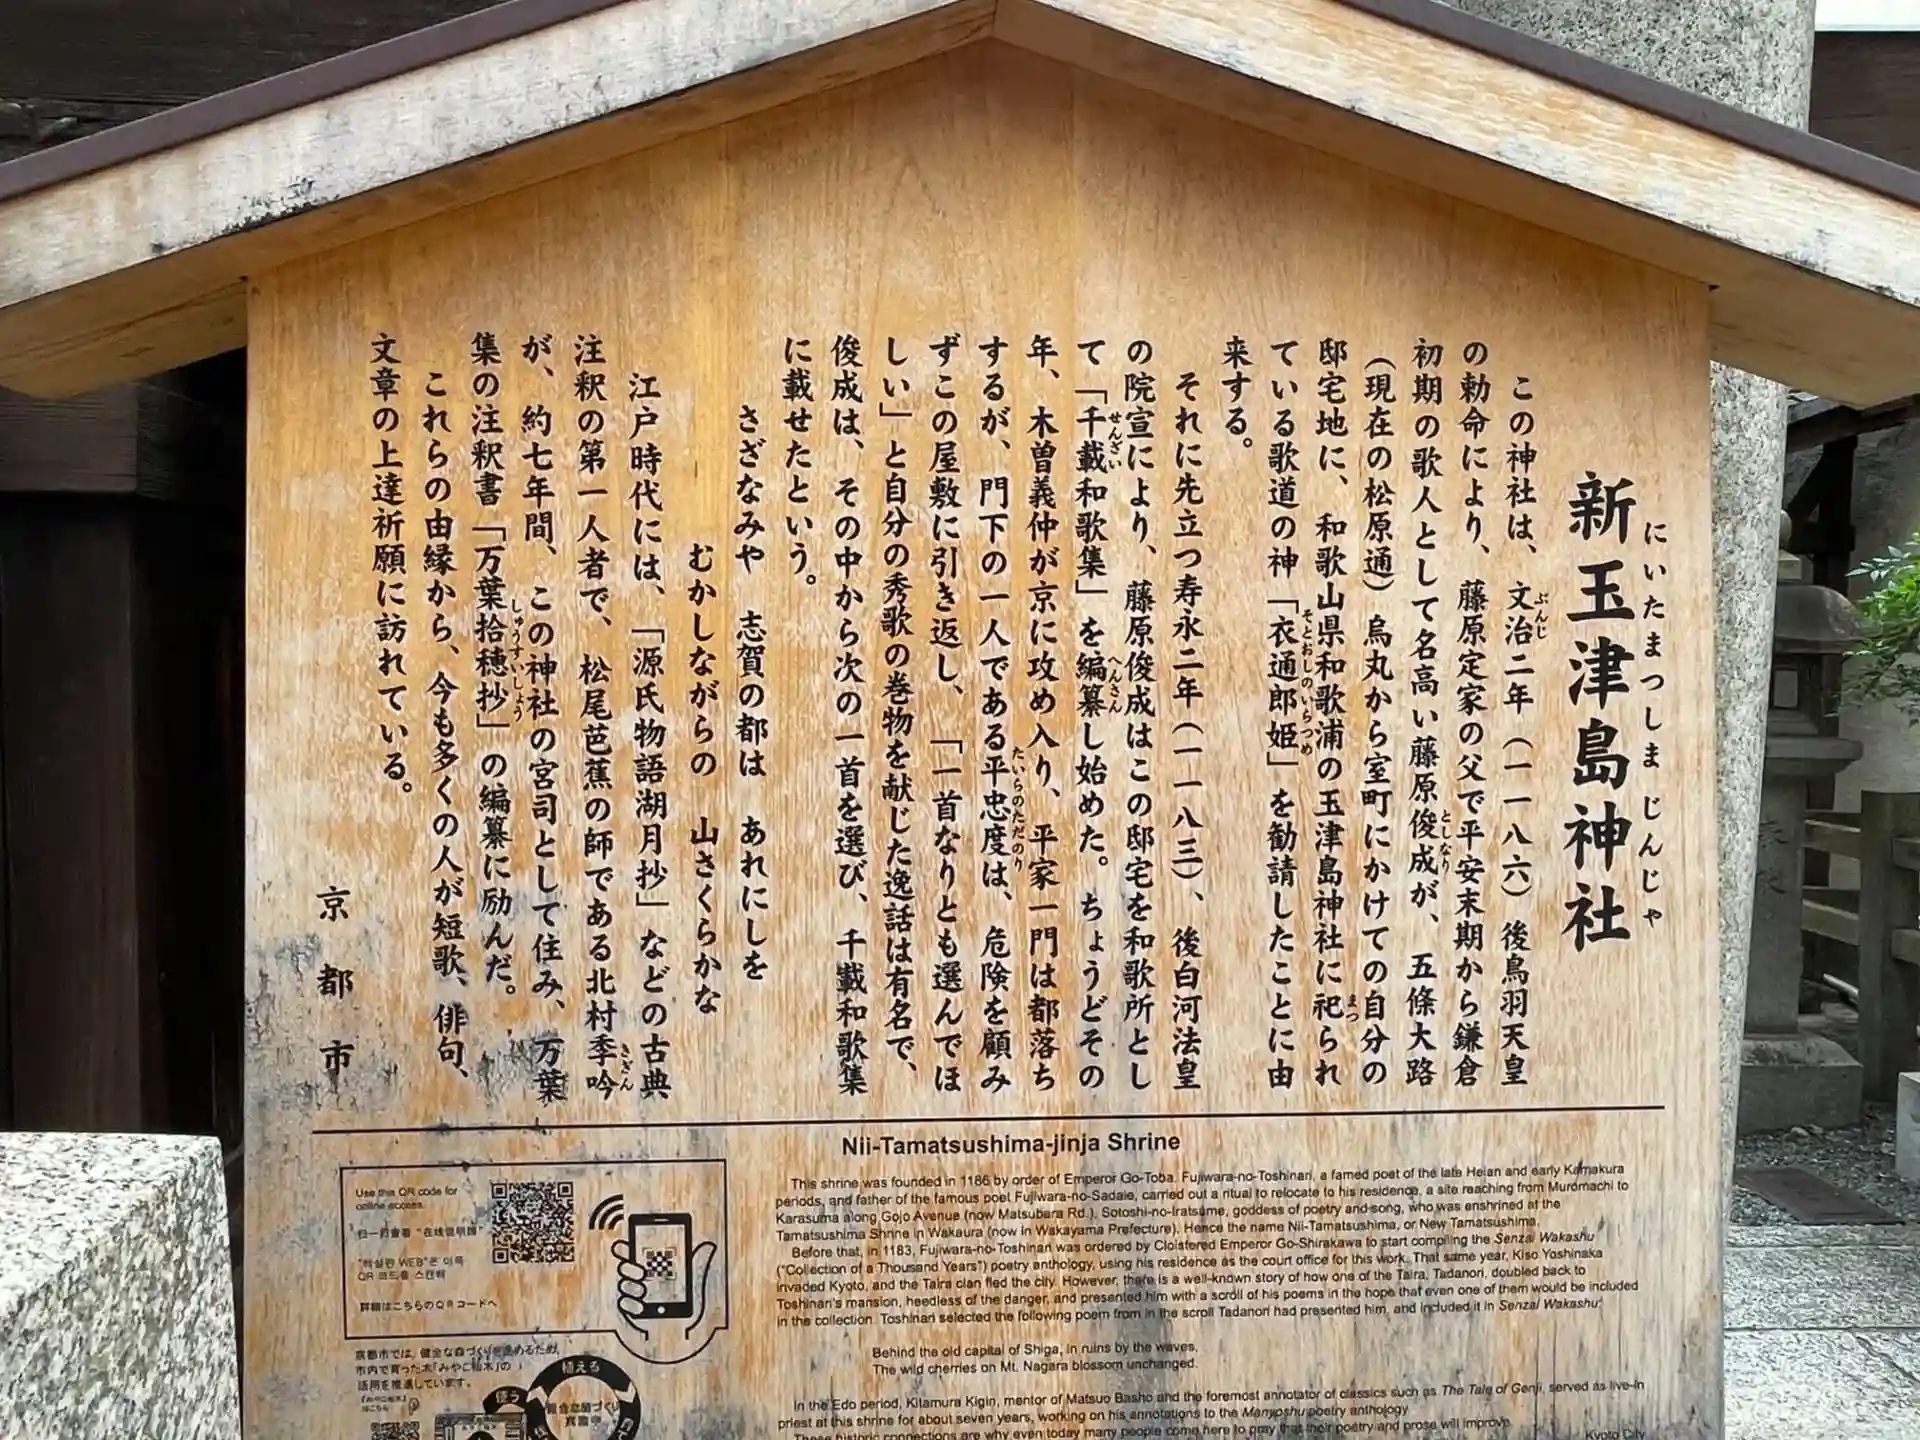 新玉津島神社
にいたまつしま じんじゃ
この神社は、文治二年（一一八六）後鳥羽天皇
ぶんじ
の勅命により、藤原定家の父で平安末期から鎌倉
初期の歌人として名高い藤原俊成が、五條大路
としなり
（現在の松原通）烏丸から室町にかけての自分の
邸宅地に、和歌山県和歌浦の玉津島神社に祀られ
まつ
ている歌道の神「衣通郎姫」を勧請したことに由
そとおしのいらつめ
来する。
それに先立つ寿永二年（一一八三）、後白河法皇
の院宣により、藤原俊成はこの邸宅を和歌所とし
て「千載和歌集」を編纂し始めた。ちょうどその
せんざい
へんさん
年、木曽義仲が京に攻め入り、平家一門は都落ち
するが、門下の一人である平忠度は、危険を顧み
たいらのただのり
ずこの屋敷に引き返し、「一首なりとも選んでほ
しい」と自分の秀歌の巻物を献じた逸話は有名で、
俊成は、その中から次の一首を選び、千載和歌集
に載せたという。
さざなみや 志賀の都は あれにしを
むかしながらの 山さくらかな
江戸時代には、「源氏物語湖月抄」などの古典
注釈の第一人者で、松尾芭蕉の師である北村季吟
きぎん
が、約七年間、この神社の宮司として住み、万葉
集の注釈書「万葉拾穂抄」の編纂に励んだ。
しゅうすいしょう
これらの由縁から、今も多くの人が短歌、俳句、
文章の上達祈願に訪れている。
京都市
Nii-Tamatsushima-jinja Shrine
This shrine was founded in 1186 by order of Emperor Go-Toba. Fujiwara-no-Toshinari, a famed poet of the late Heian and early Kamakura
periods, and father of the famous poet Fujiwara-no-Sadaie, carried out a ritual to relocate to his residence, a site reaching from Muromachi to
Karasuma along Gojo Avenue (now Matsubara Rd.), Sotoshi-no-Iratsume, goddess of poetry and song, who was enshrined at the
Tamatsushima Shrine in Wakaura (now in Wakayama Prefecture). Hence the name Nii-Tamatsushima, or New Tamatsushima.
Before that, in 1183, Fujiwara-no-Toshinari was ordered by Cloistered Emperor Go-Shirakawa to start compiling the Senzai Wakashu
("Collection of a Thousand Years") poetry anthology, using his residence as the court office for this work. That same year, Kiso Yoshinaka
invaded Kyoto, and the Taira clan fled the city. However, there is a well-known story of how one of the Taira, Tadanori, doubled back to
Toshinari's mansion, heedless of the danger, and presented him with a scroll of his poems in the hope that even one of them would be included
in the collection. Toshinari selected the following poem from in the scroll Tadanori had presented him, and included it in Senzai Wakashu:
Behind the old capital of Shiga, in ruins by the waves,
The wild cherries on Mt. Nagara blossom unchanged.
In the Edo period, Kitamura Kigin, mentor of Matsuo Basho and the foremost annotator of classics such as The Tale of Genji, served as live-in
priest at this shrine for about seven years, working on his annotations to the Manyoshu poetry anthology.
These historic connections are why even today many people come here to pray that their poetry and prose will improve.
Kyoto City
Use this QR code for
online access.
扫一扫查看 "在线说明牌"
"해설판 WEB"은 이쪽
QR 코드를 스캔해
詳細はこちらのQRコードへ
京都市では、健全な森づくりを進めるため、
市内で育った木「みやこ杣木」の
活用を推進しています。
植える
使う